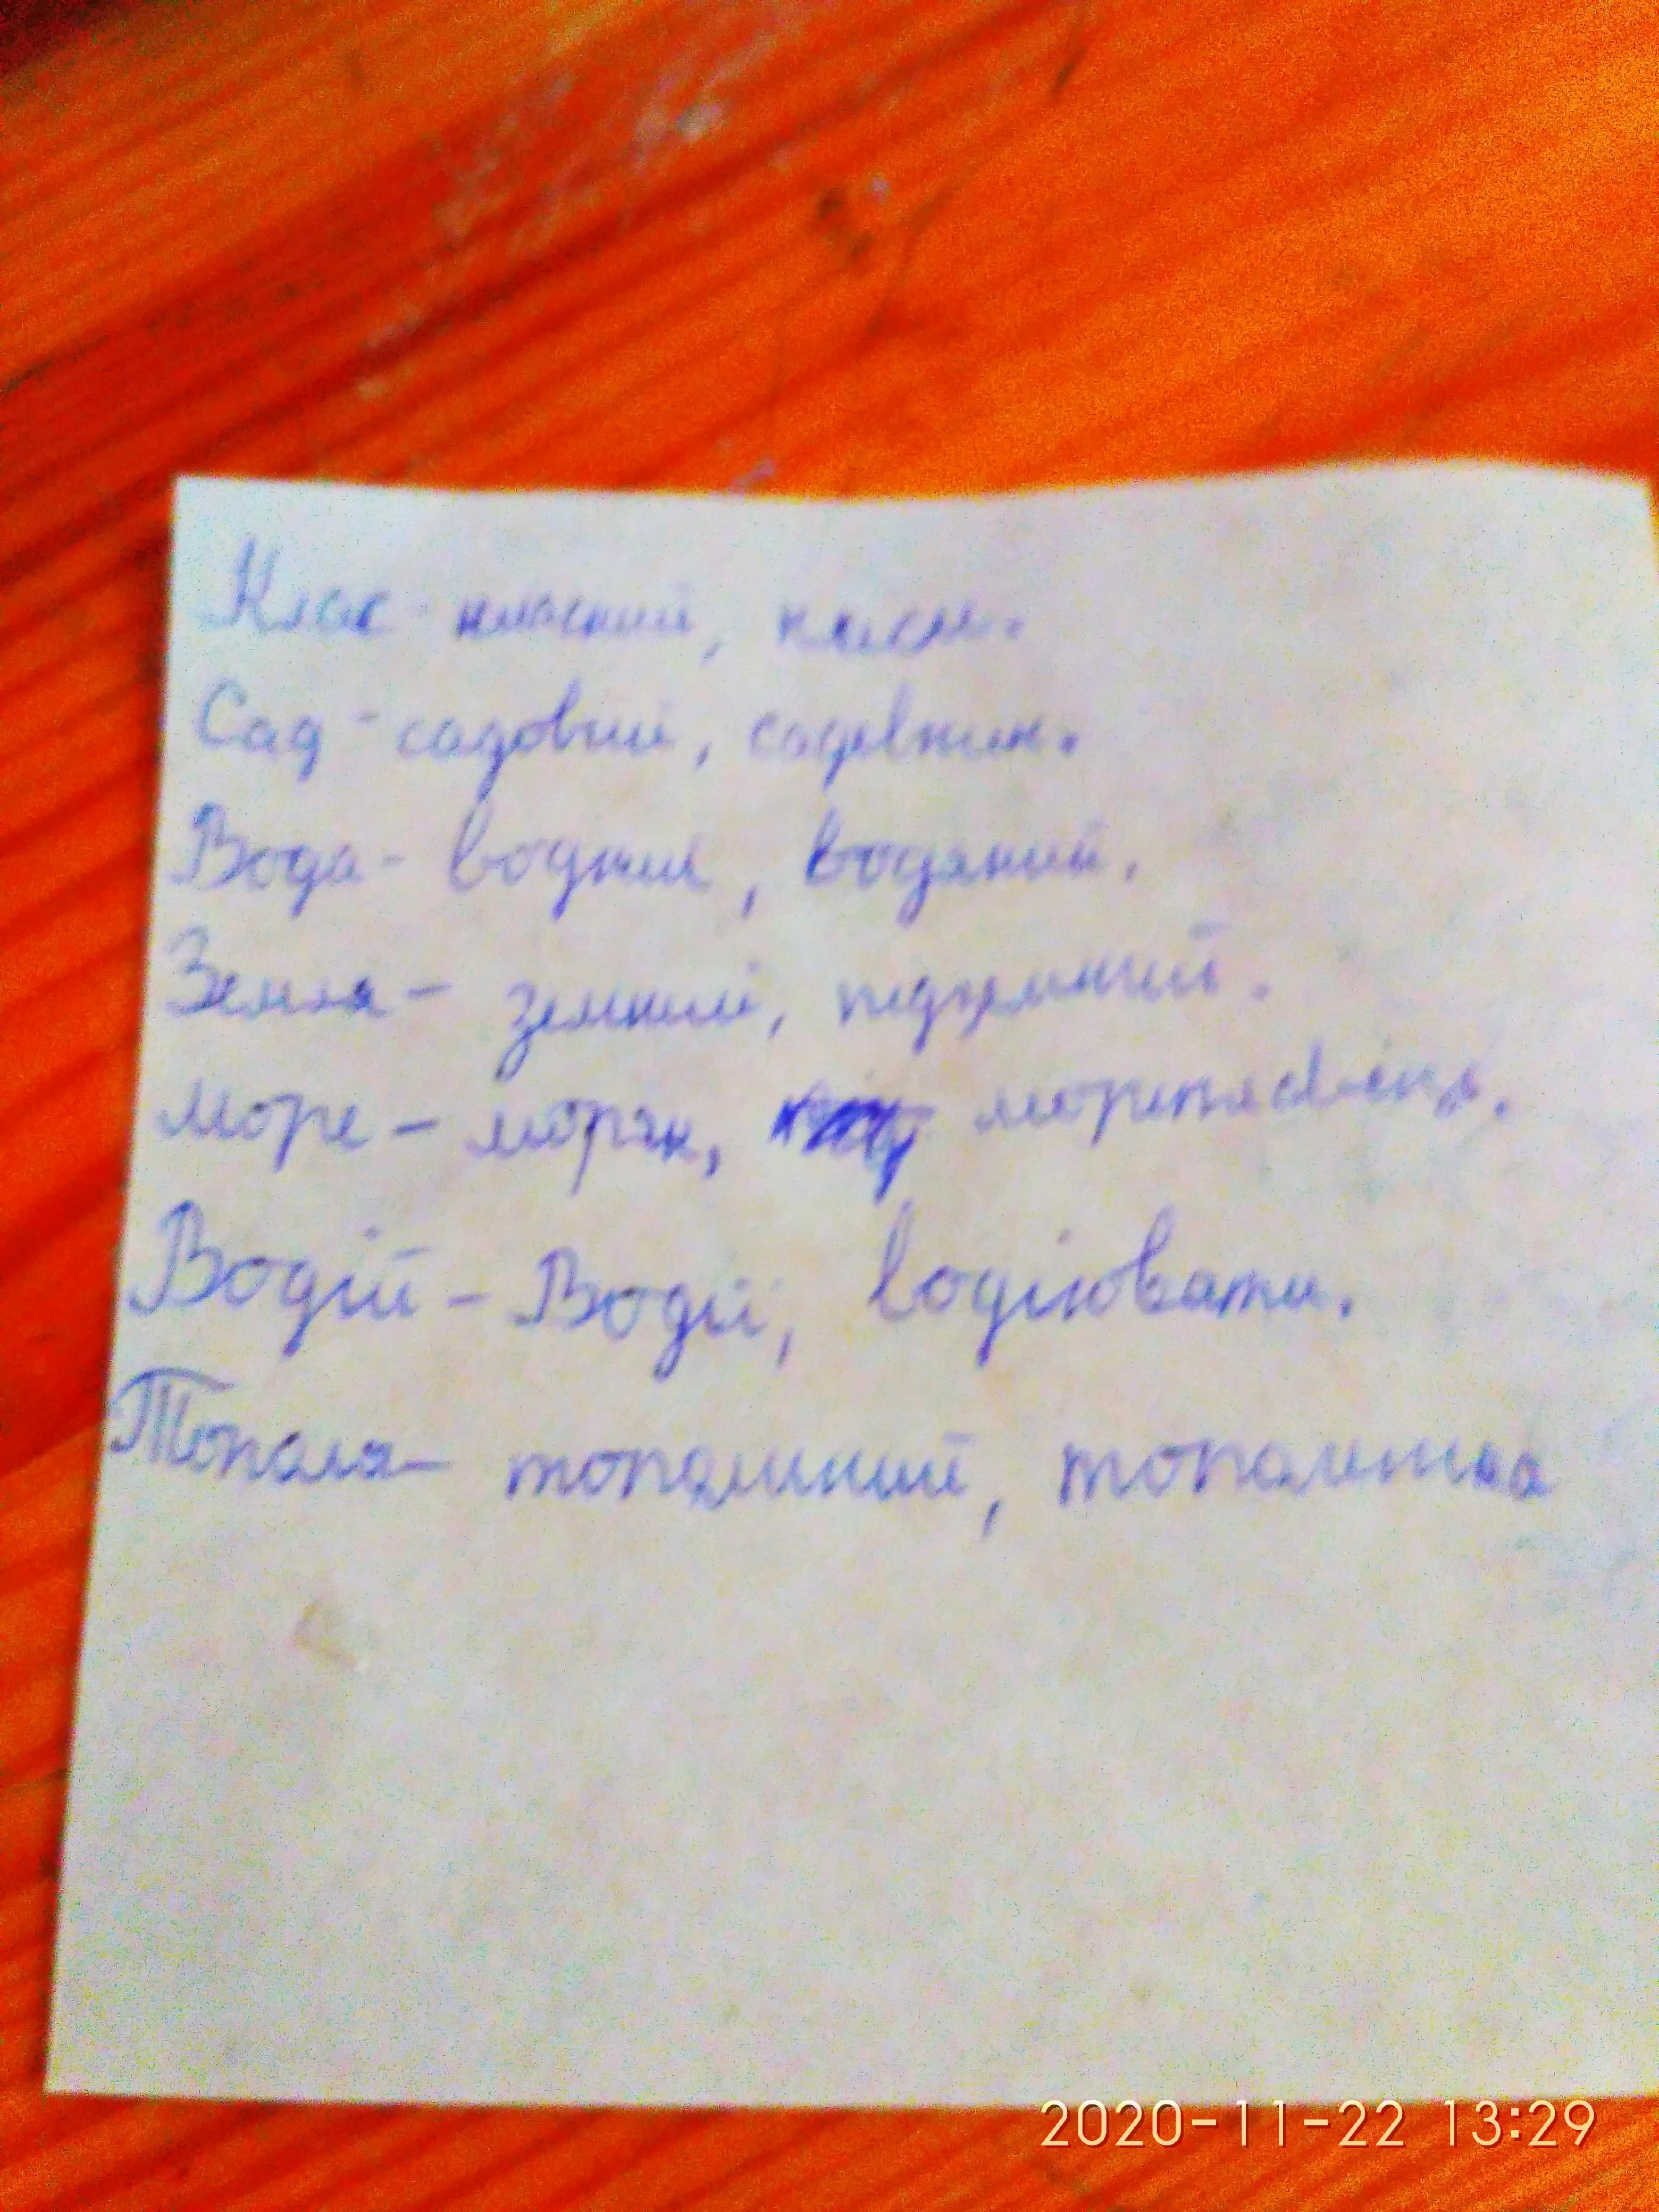 Клас - класний, класи.
Сад - садовий, садівник.
Вода - водний, водяний.
Земля - земний, підземний.
Море - моряк,
Водій - Водії, водіювати.
Тополя - тополиний, тополинка
2020-11-22 13:29